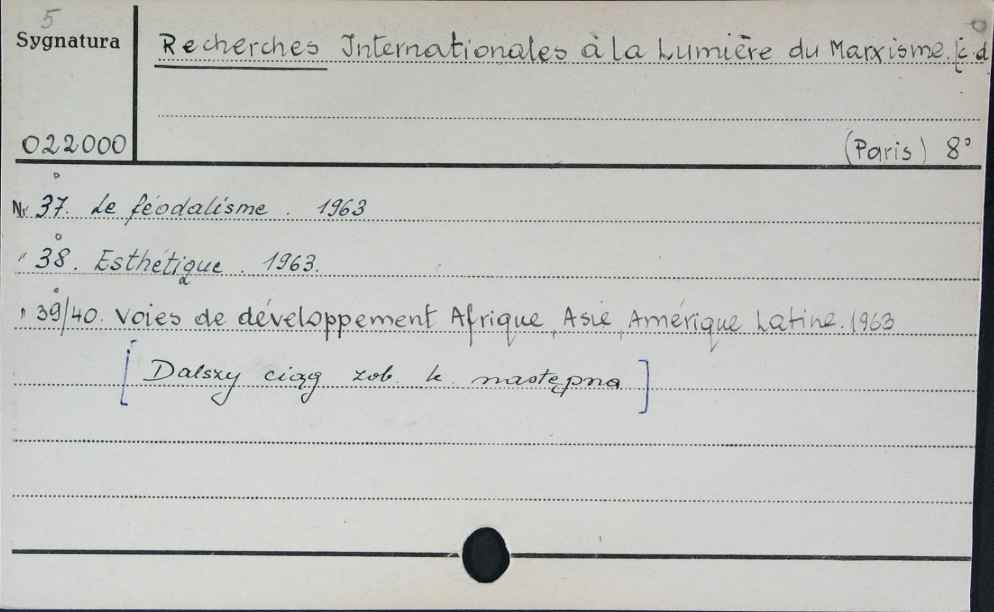 5
Sygnatura
Recherches Internationales à la Lumière du Marxisme. [c d
022000
(Paris) 8°
Nr. 37. Le féodalisme. 1963
" 38. Esthétique. 1963.
" 39/40. Voies de développement Afrique, Asie, Amérique Latine. 1963
[Dalszy ciąg zob. k. następna]